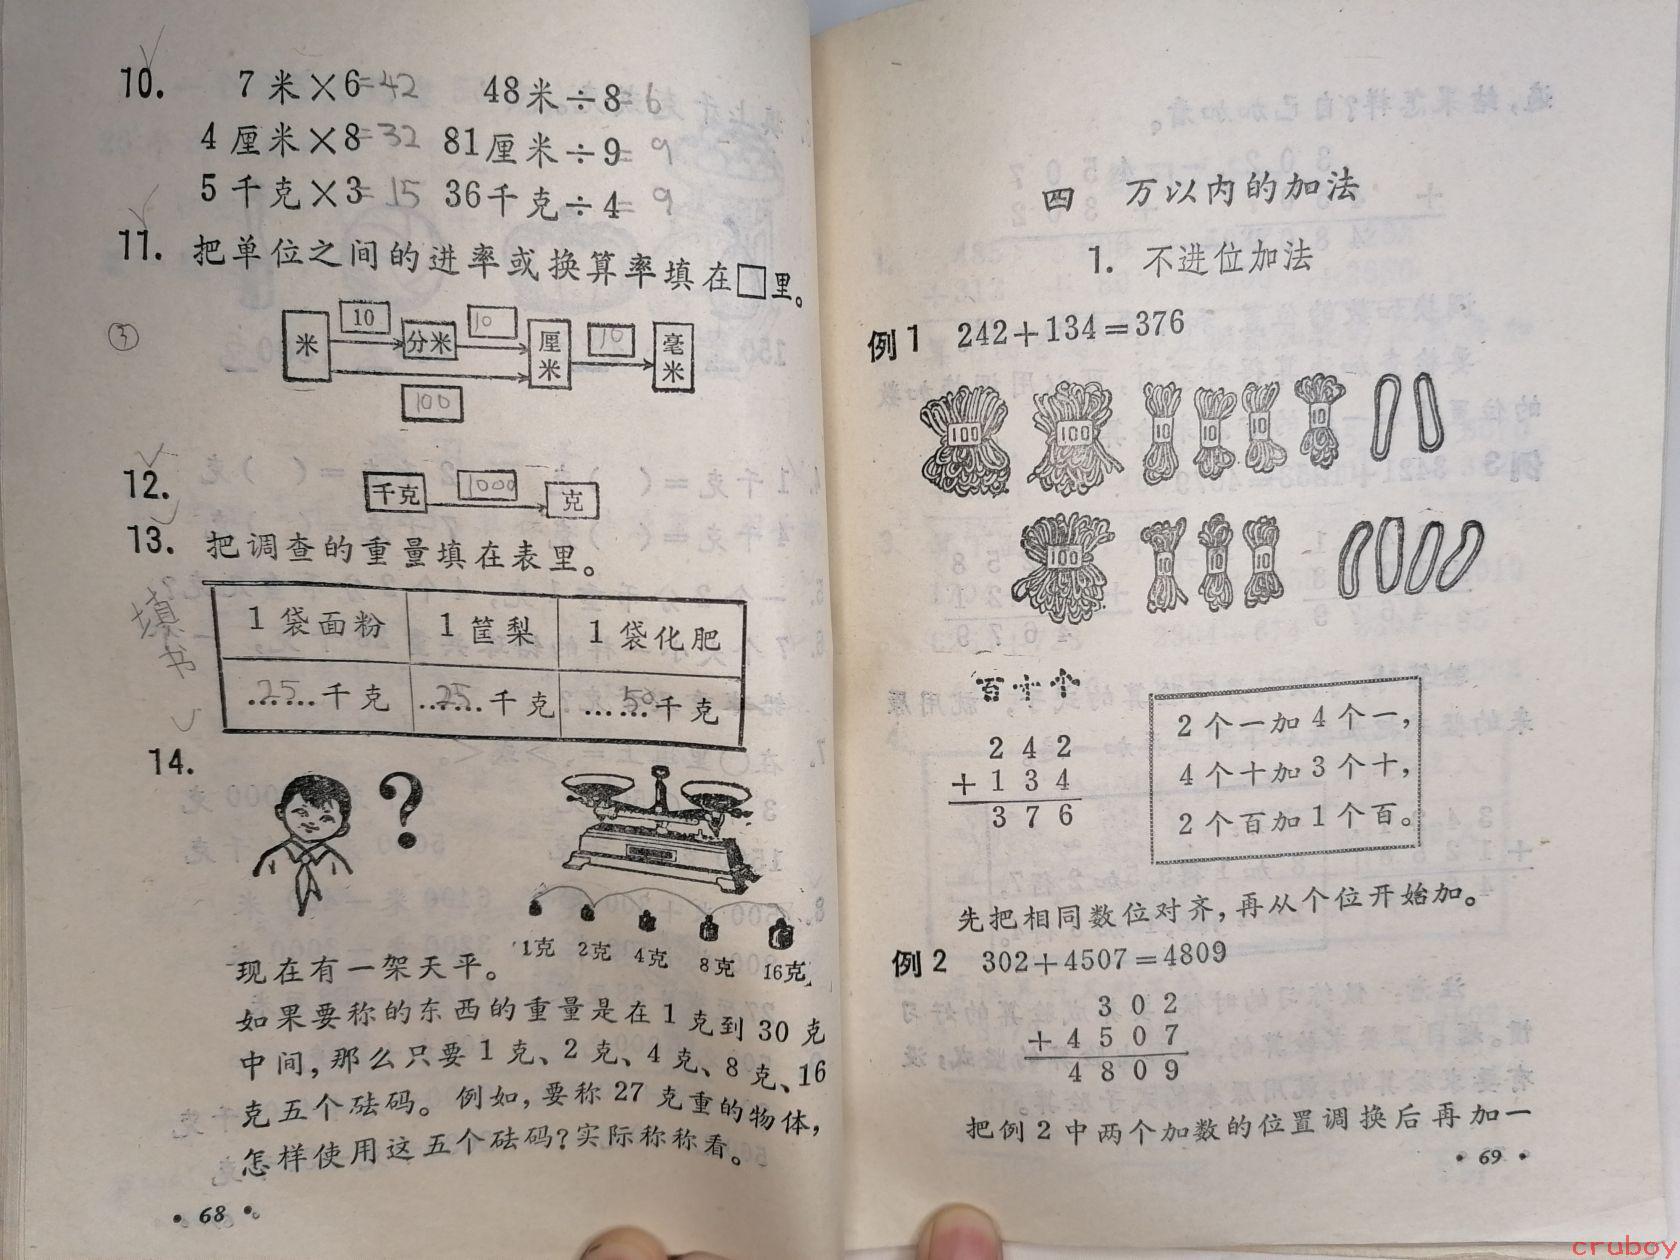 10. 7米×6=42 48米÷8=6
4厘米×8=32 81厘米÷9=9
5千克×3=15 36千克÷4=9
11. 把单位之间的进率或换算率填在□里。
10 10 10
米 分米 厘米 毫米
100
12. 千克 1000 克
13. 把调查的重量填在表里。
填书
1袋面粉 1筐梨 1袋化肥
..25..千克 ..25..千克 ..50..千克
14.
?
1克 2克 4克 8克 16克
现在有一架天平。
如果要称的东西的重量是在1克到30克
中间，那么只要1克、2克、4克、8克、16
克五个砝码。例如，要称27克重的物体，
怎样使用这五个砝码？实际称称看。
·68·
四 万以内的加法
1. 不进位加法
例1 242+134=376
100 100 10 10 10 10
100 10 10 10
百十个
2 4 2
+1 3 4
3 7 6
2个一加4个一，
4个十加3个十，
2个百加1个百。
先把相同数位对齐，再从个位开始加。
例2 302+4507=4809
3 0 2
+4 5 0 7
4 8 0 9
把例2中两个加数的位置调换后再加一
·69·
cruboy